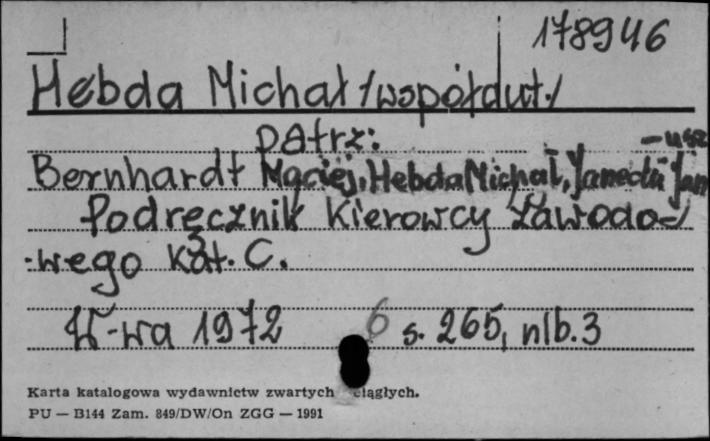 178946
Hebda Michał /współaut./
patrz:
Bernhardt Maciej, Hebda Michał, Janecki Jan
Podręcznik kierowcy zawodo-
wego kat. C.
W-wa 1972 6 s. 265, nlb. 3
Karta katalogowa wydawnictw zwartych ciągłych.
PU — B144 Zam. 849/DW/On ZGG — 1991